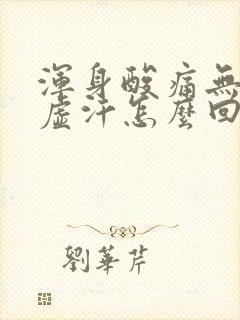 渾身酸痛無
虛汗怎麼回
劉華芹